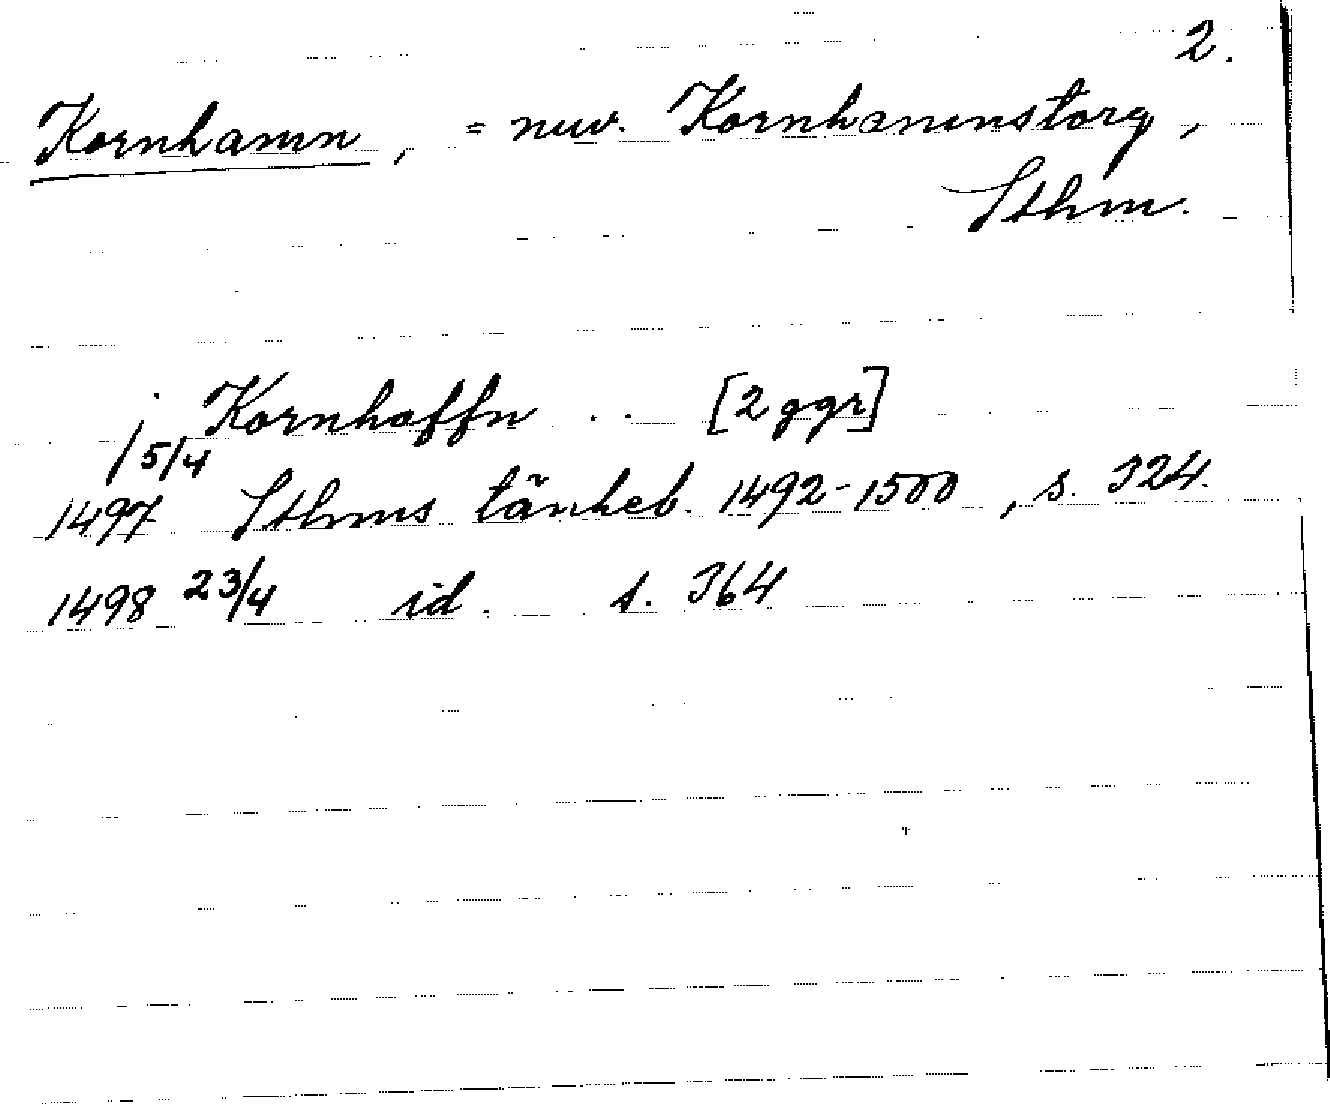 2.
Kornhamn, = nuv. Kornhamnstorg,
Sthm.
j Kornhaffn .. [2 ggr]
1497 5/4 Sthms tänkeb. 1492-1500, s. 324.
1498 23/4 id. s. 364